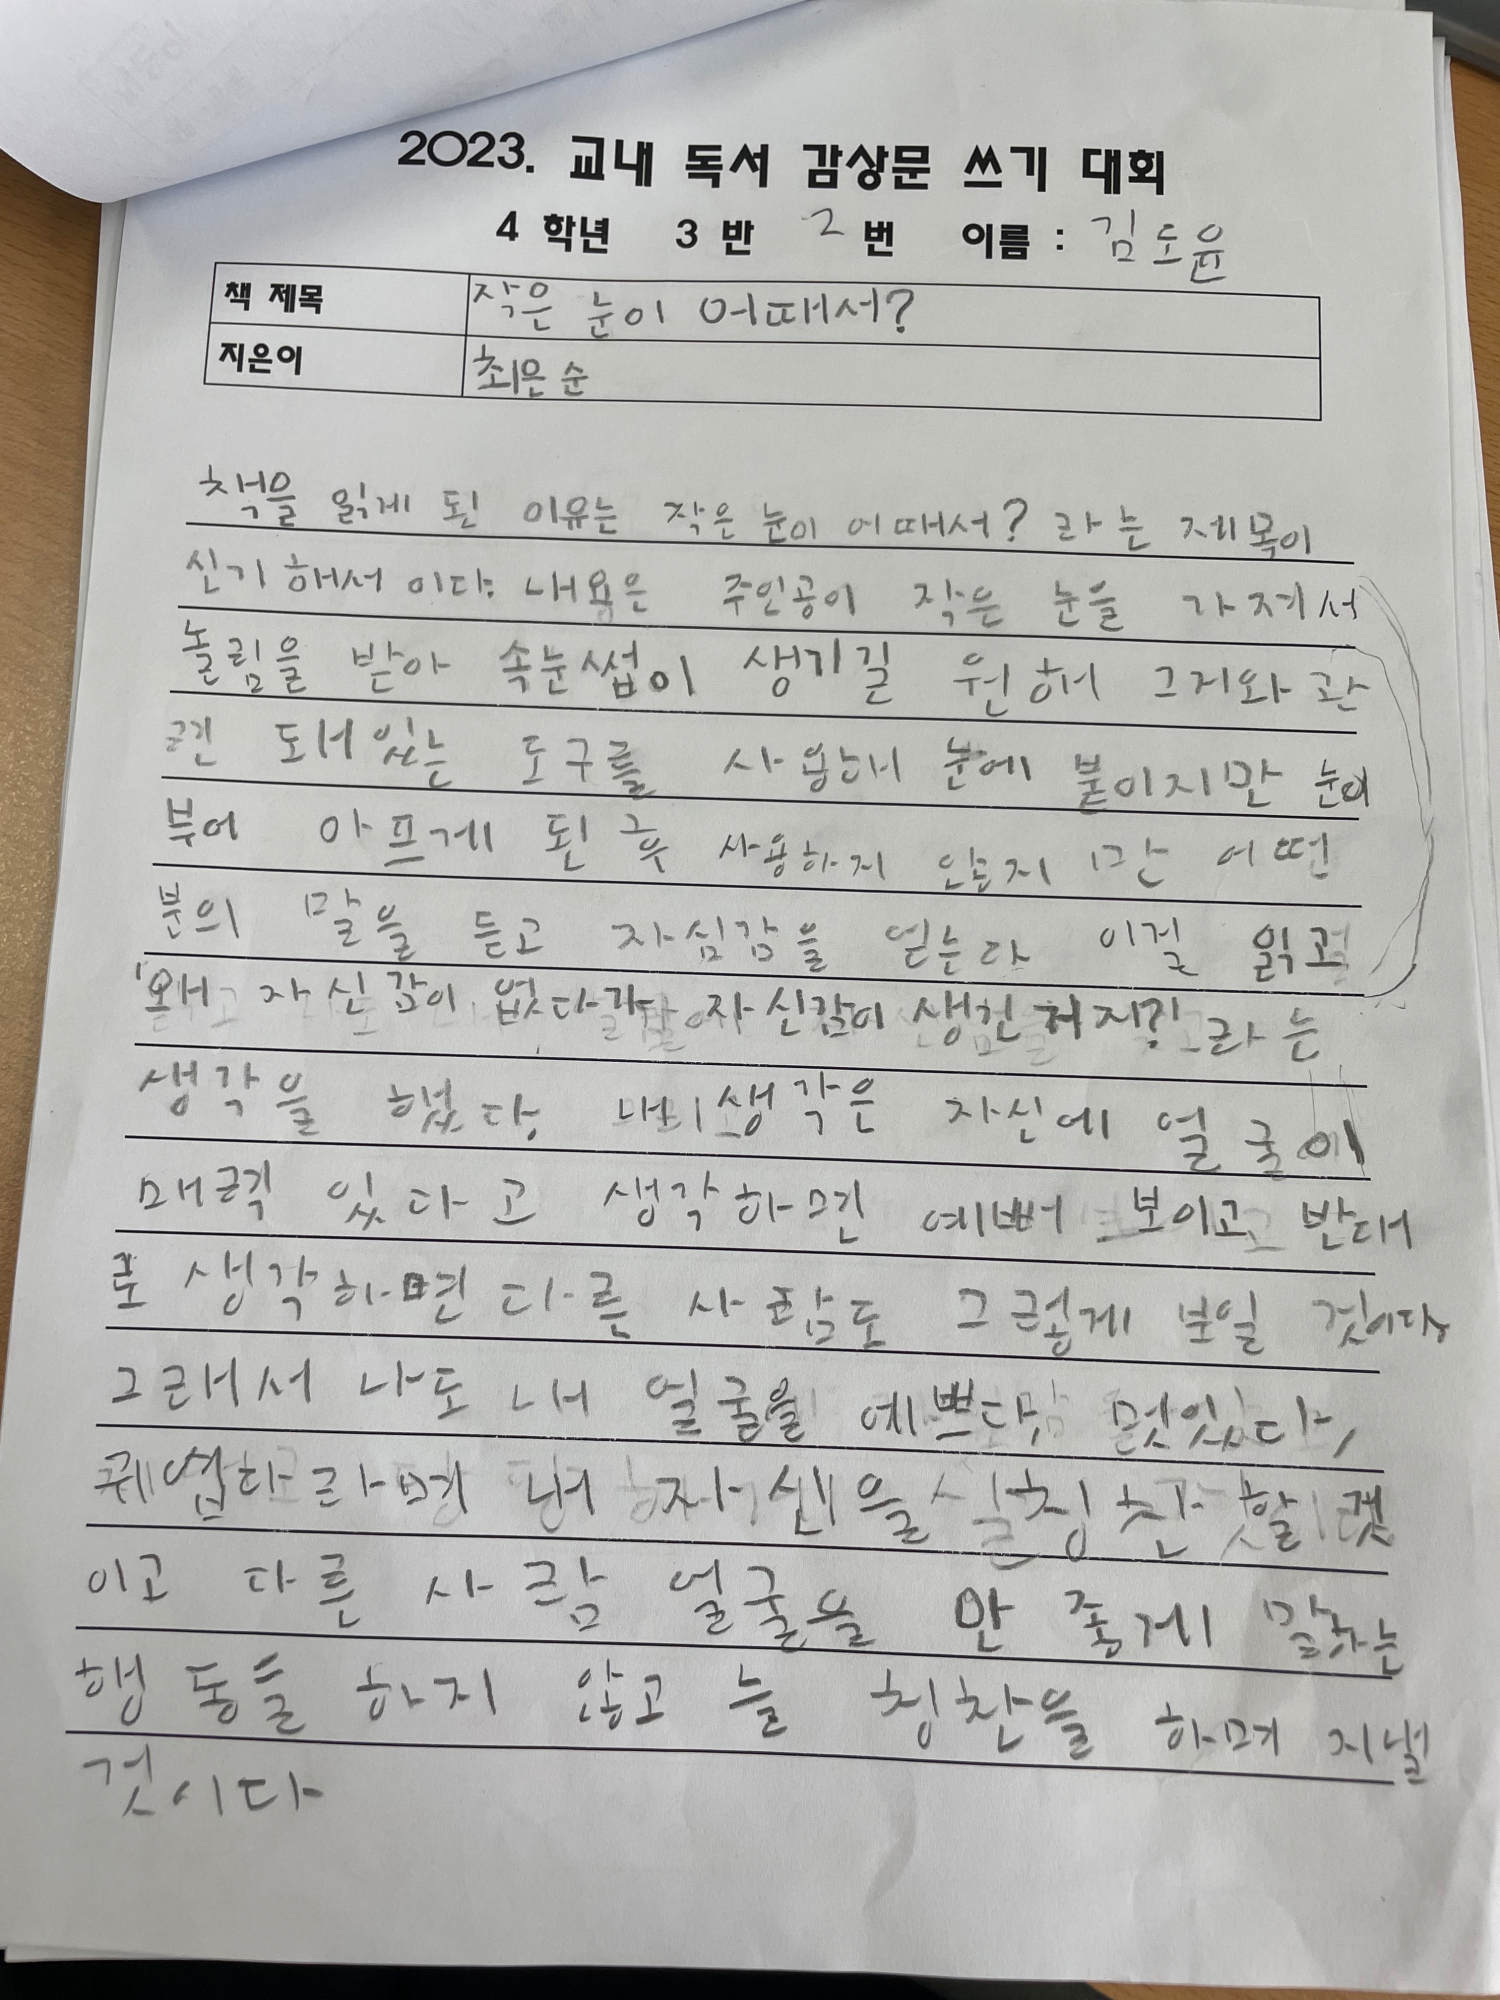 2023. 교내 독서 감상문 쓰기 대회
4 학년 3 반 2 번 이름 : 김도윤
책 제목 작은 눈이 어때서?
지은이 최은순
책을 읽게 된 이유는 작은 눈이 어때서? 라는 제목이
신기해서 이다. 내용은 주인공이 작은 눈을 가져서
놀림을 받아 속눈썹이 생기길 원해 그거와 관
련 돼있는 도구를 사용해 눈에 붙이지만 눈이
부어 아프게 된 후 사용하지 않지만 어떤
분의 말을 듣고 자심감을 얻는다 이걸 읽고
'왜 자신감이 없다가, 자신감이 생긴 거지?' 라는
생각을 했다. 내 생각은 자신에 얼굴이
매력 있다고 생각하면 예뻐 보이고 반대
로 생각하면 다른 사람도 그렇게 보일 것이다.
그래서 나도 내 얼굴을 예쁘다, 멋있다,
귀엽다라며 내 자신을 칭찬할 것
이고 다른 사람 얼굴을 안 좋게 말하는
행동을 하지 않고 늘 칭찬을 하며 지낼
것이다